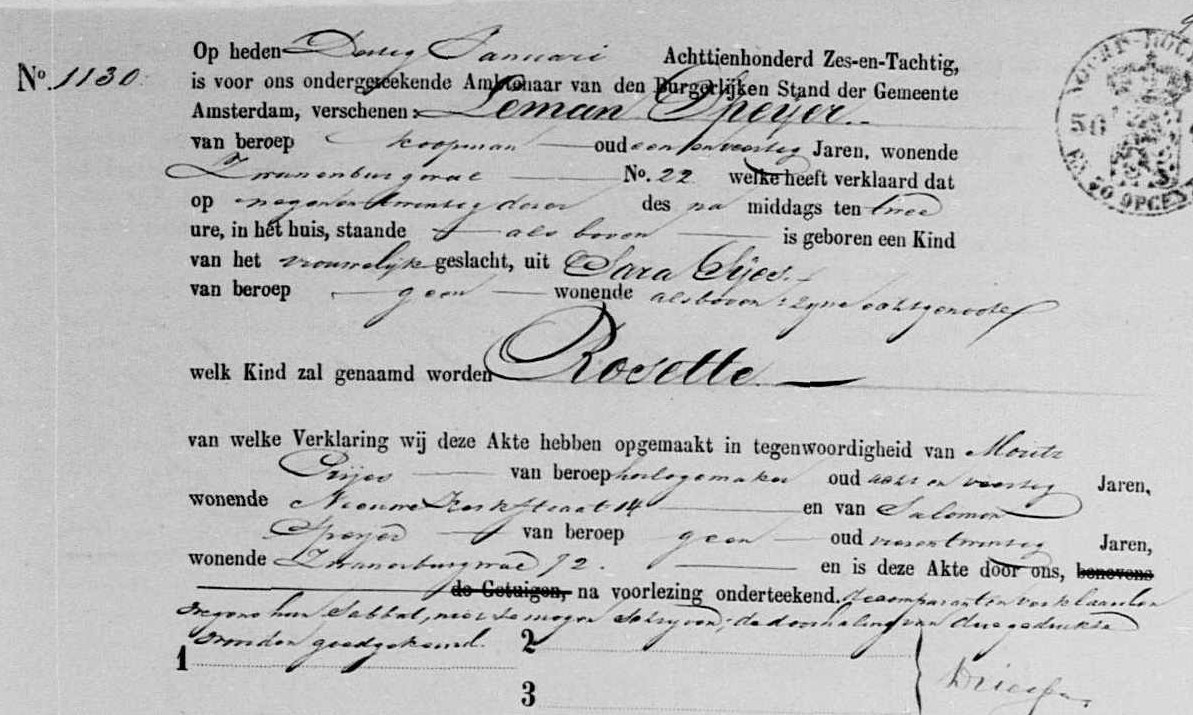 No. 1130. Op heden Dertig Januari Achttienhonderd Zes-en-Tachtig,
is voor ons ondergeteekende Ambtenaar van den Burgerlijken Stand der Gemeente
Amsterdam, verschenen: Leman Speyer.
van beroep koopman oud een en veertig Jaren, wonende
Zwanenburgwal No. 22 welke heeft verklaard dat
op negen en twintig dezer des na middags ten twee
ure, in het huis, staande als boven is geboren een Kind
van het vrouwelijk geslacht, uit Sara Sijes.
van beroep geen wonende als boven: zijne echtgenoote
welk Kind zal genaamd worden Rosette
van welke Verklaring wij deze Akte hebben opgemaakt in tegenwoordigheid van Moritz
van beroep horlogemaker oud acht en veertig Jaren,
wonende Nieuwe Kerkstraat 14 en van Salomon
Speijer van beroep geen oud vier en twintig Jaren,
wonende Zwanenburgwal 72. en is deze Akte door ons, benevens
de Getuigen, na voorlezing onderteekend. De comparanten verklaarden
wegens hun Sabbat, niet te mogen schrijven; de doorhaling van drie gedrukte
woorden goedgekeurd.
1 2
3
50
EN 50 OPCEN